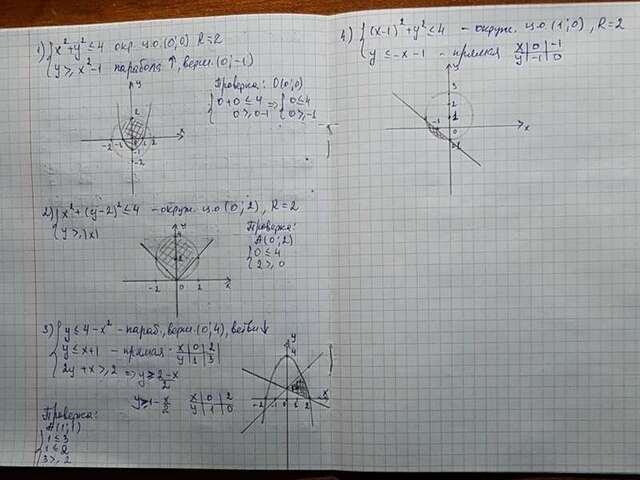 1) { x²+y² ≤ 4 окр. ц.о.(0;0) R=2
y ≥ x²-1 парабола ↑, верш.(0;-1)
Проверка: O(0;0)
{ 0+0 ≤ 4 => { 0 ≤ 4
0 ≥ 0-1 0 ≥ -1
y
2
x
-2 -1 1 2
-1
-2
2) { x²+(y-2)² ≤ 4 - окруж. ц.о(0;2), R=2
y ≥ |x|
Проверка:
A(0;2)
{ 0 ≤ 4
2 ≥ 0
y
4
2
-2 2 x
3) { y ≤ 4-x² - параб., верш.(0;4), ветви ↓
y ≤ x+1 - прямая x | 0 | 2
y | 1 | 3
2y+x ≥ 2 => y ≥ 2-x/2
y ≥ 1-x/2 x | 0 | 2
y | 1 | 0
y
4
-2 0 2 x
Проверка:
A(1;1)
{ 1 ≤ 3
1 ≤ 2
3 ≥ 2
4) { (x-1)²+y² ≤ 4 - окруж. ц.о.(1;0), R=2
y ≤ -x-1 - прямая x | 0 | -1
y | -1 | 0
y
3
2
1
-1 0 x
-1